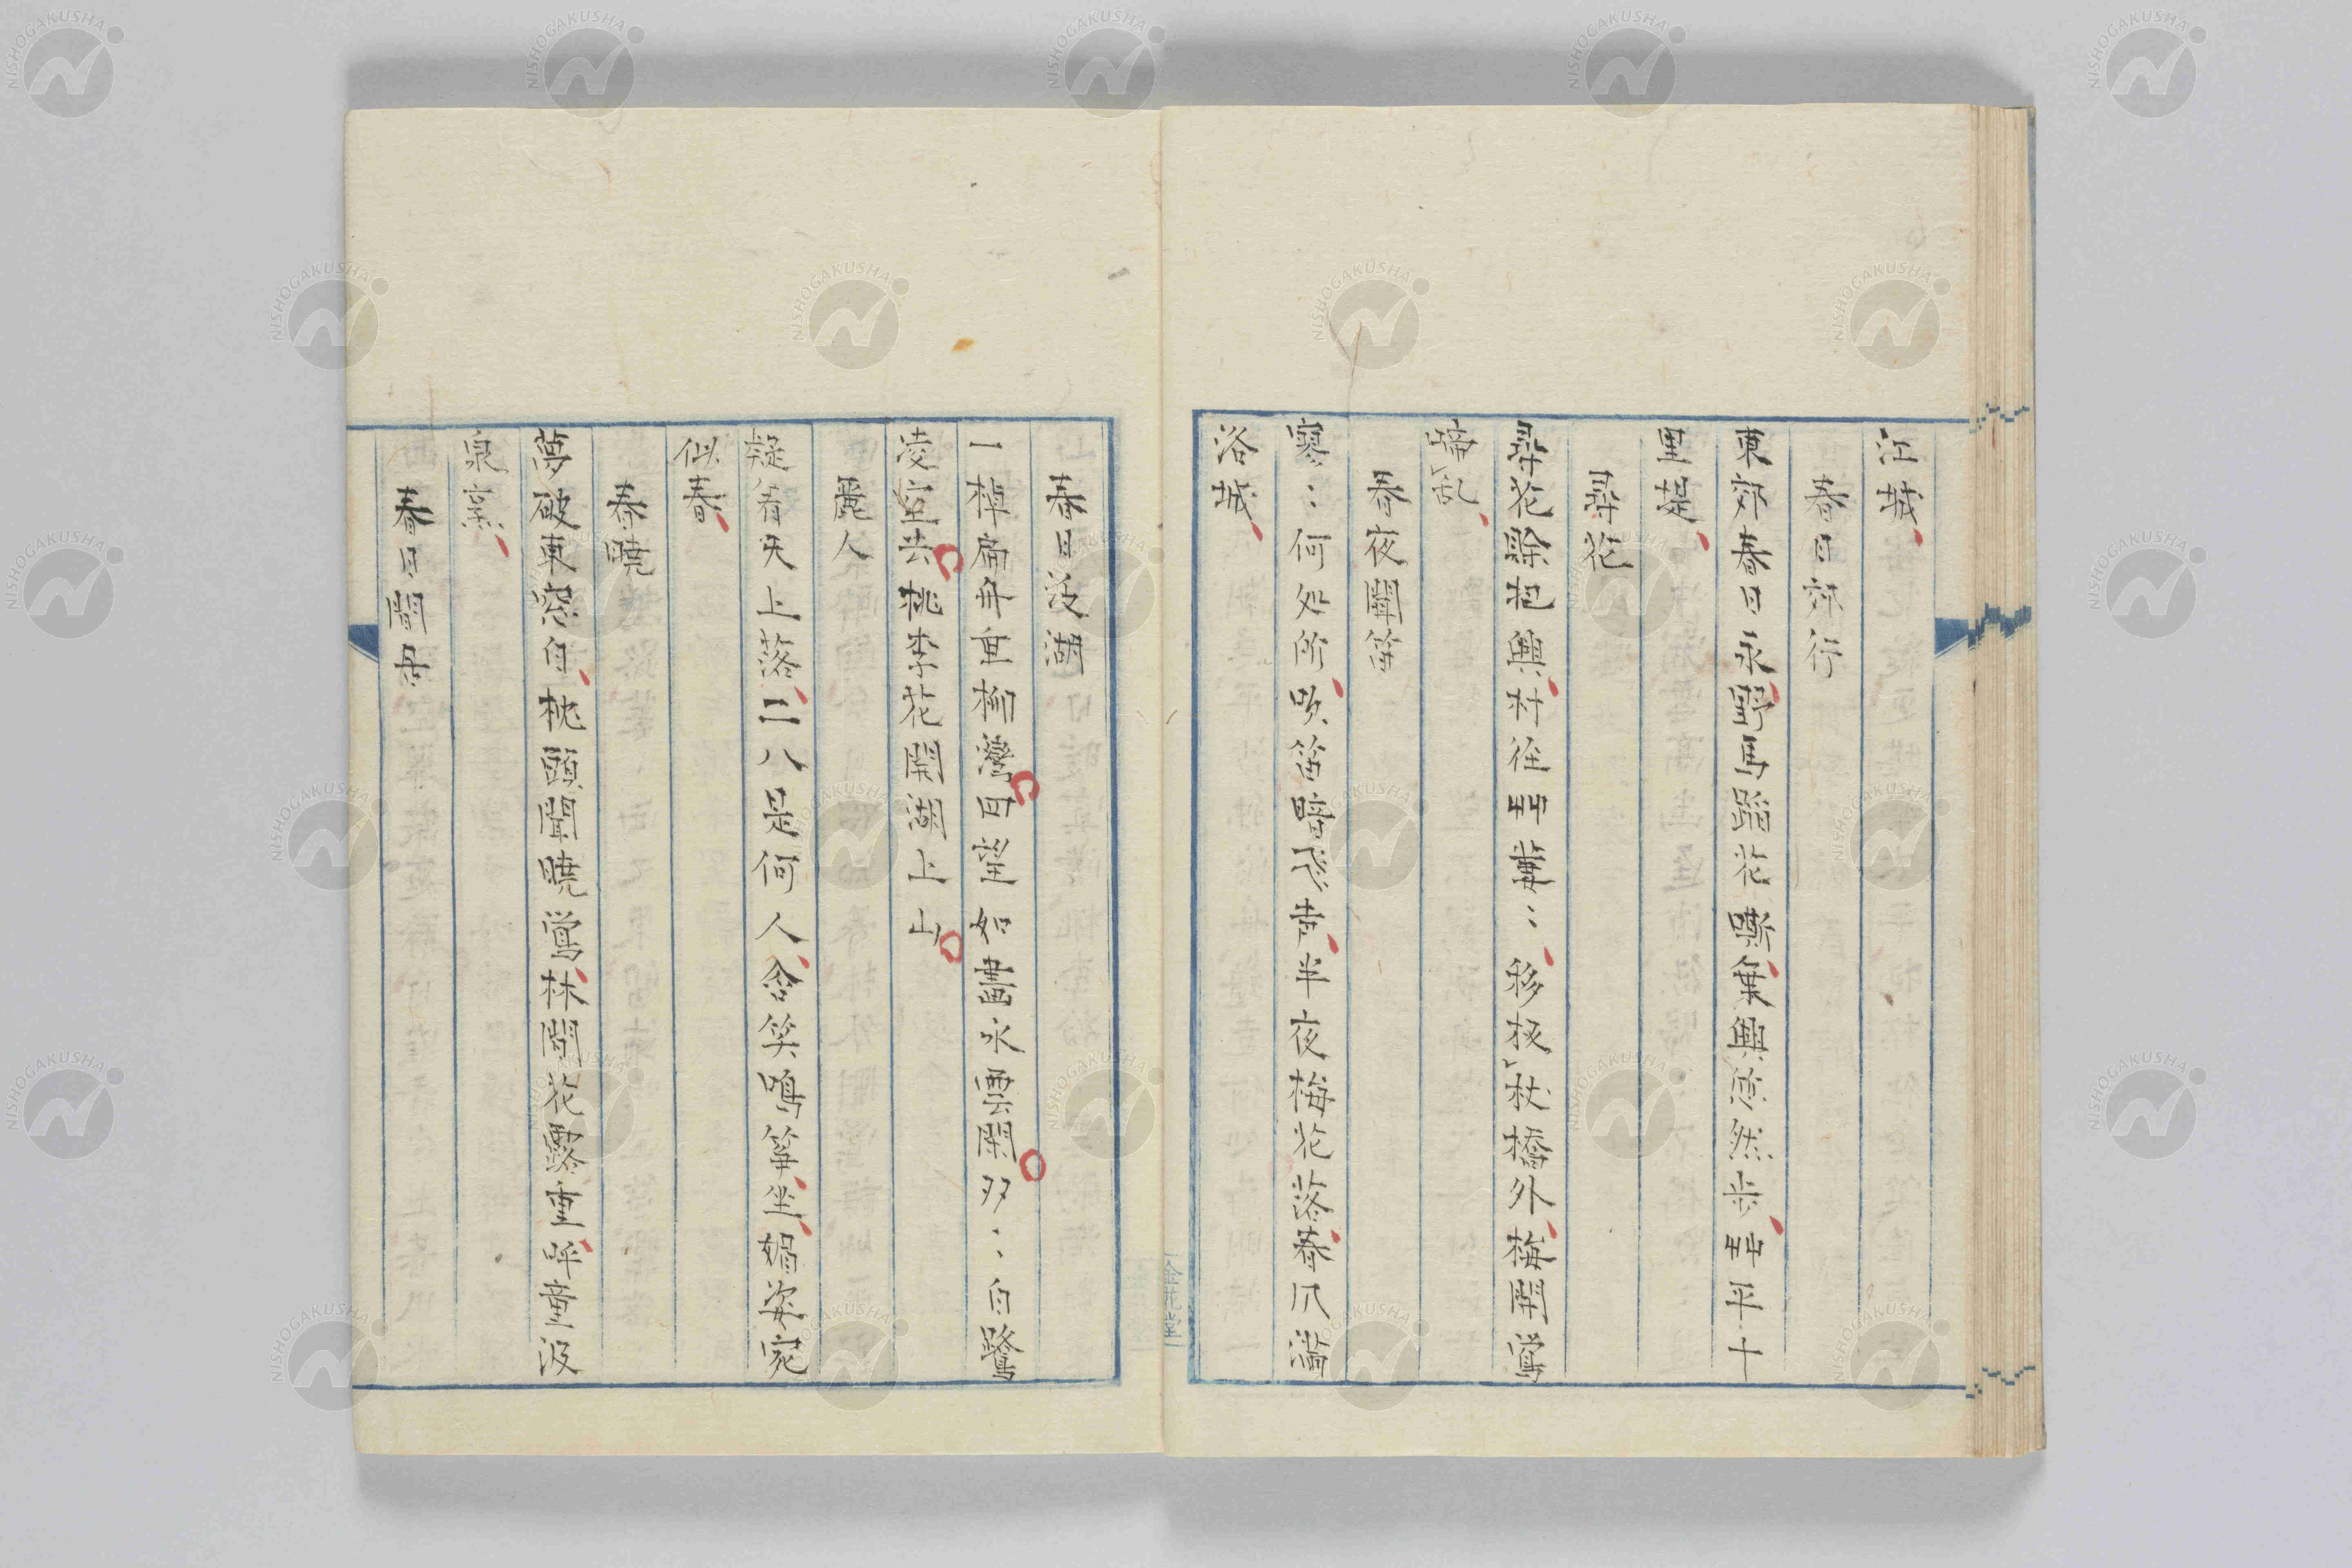 江城
春日郊行
東郊春日永野馬蹈花嘶乗興悠然歩艸平十
里堤
尋花
尋花除抱興村径艸萋〻移杖橋外梅開鶯
啼乱
春夜聞笛
寥〻何処所吹笛暗飛声半夜梅花落春风満
洛城
春日泛湖
一棹扁舟垂柳灣回望如畵水雲閑双〻白鷺
凌空去桃李花開湖上山
麗人
疑看天上落二八是何人含笑鳴箏坐媚姿宛
似春
春暁
夢破東窓白枕頭聞暁鶯林間花露重呼童汲
泉
春日閑
金花堂
NISHOGAKUSHA